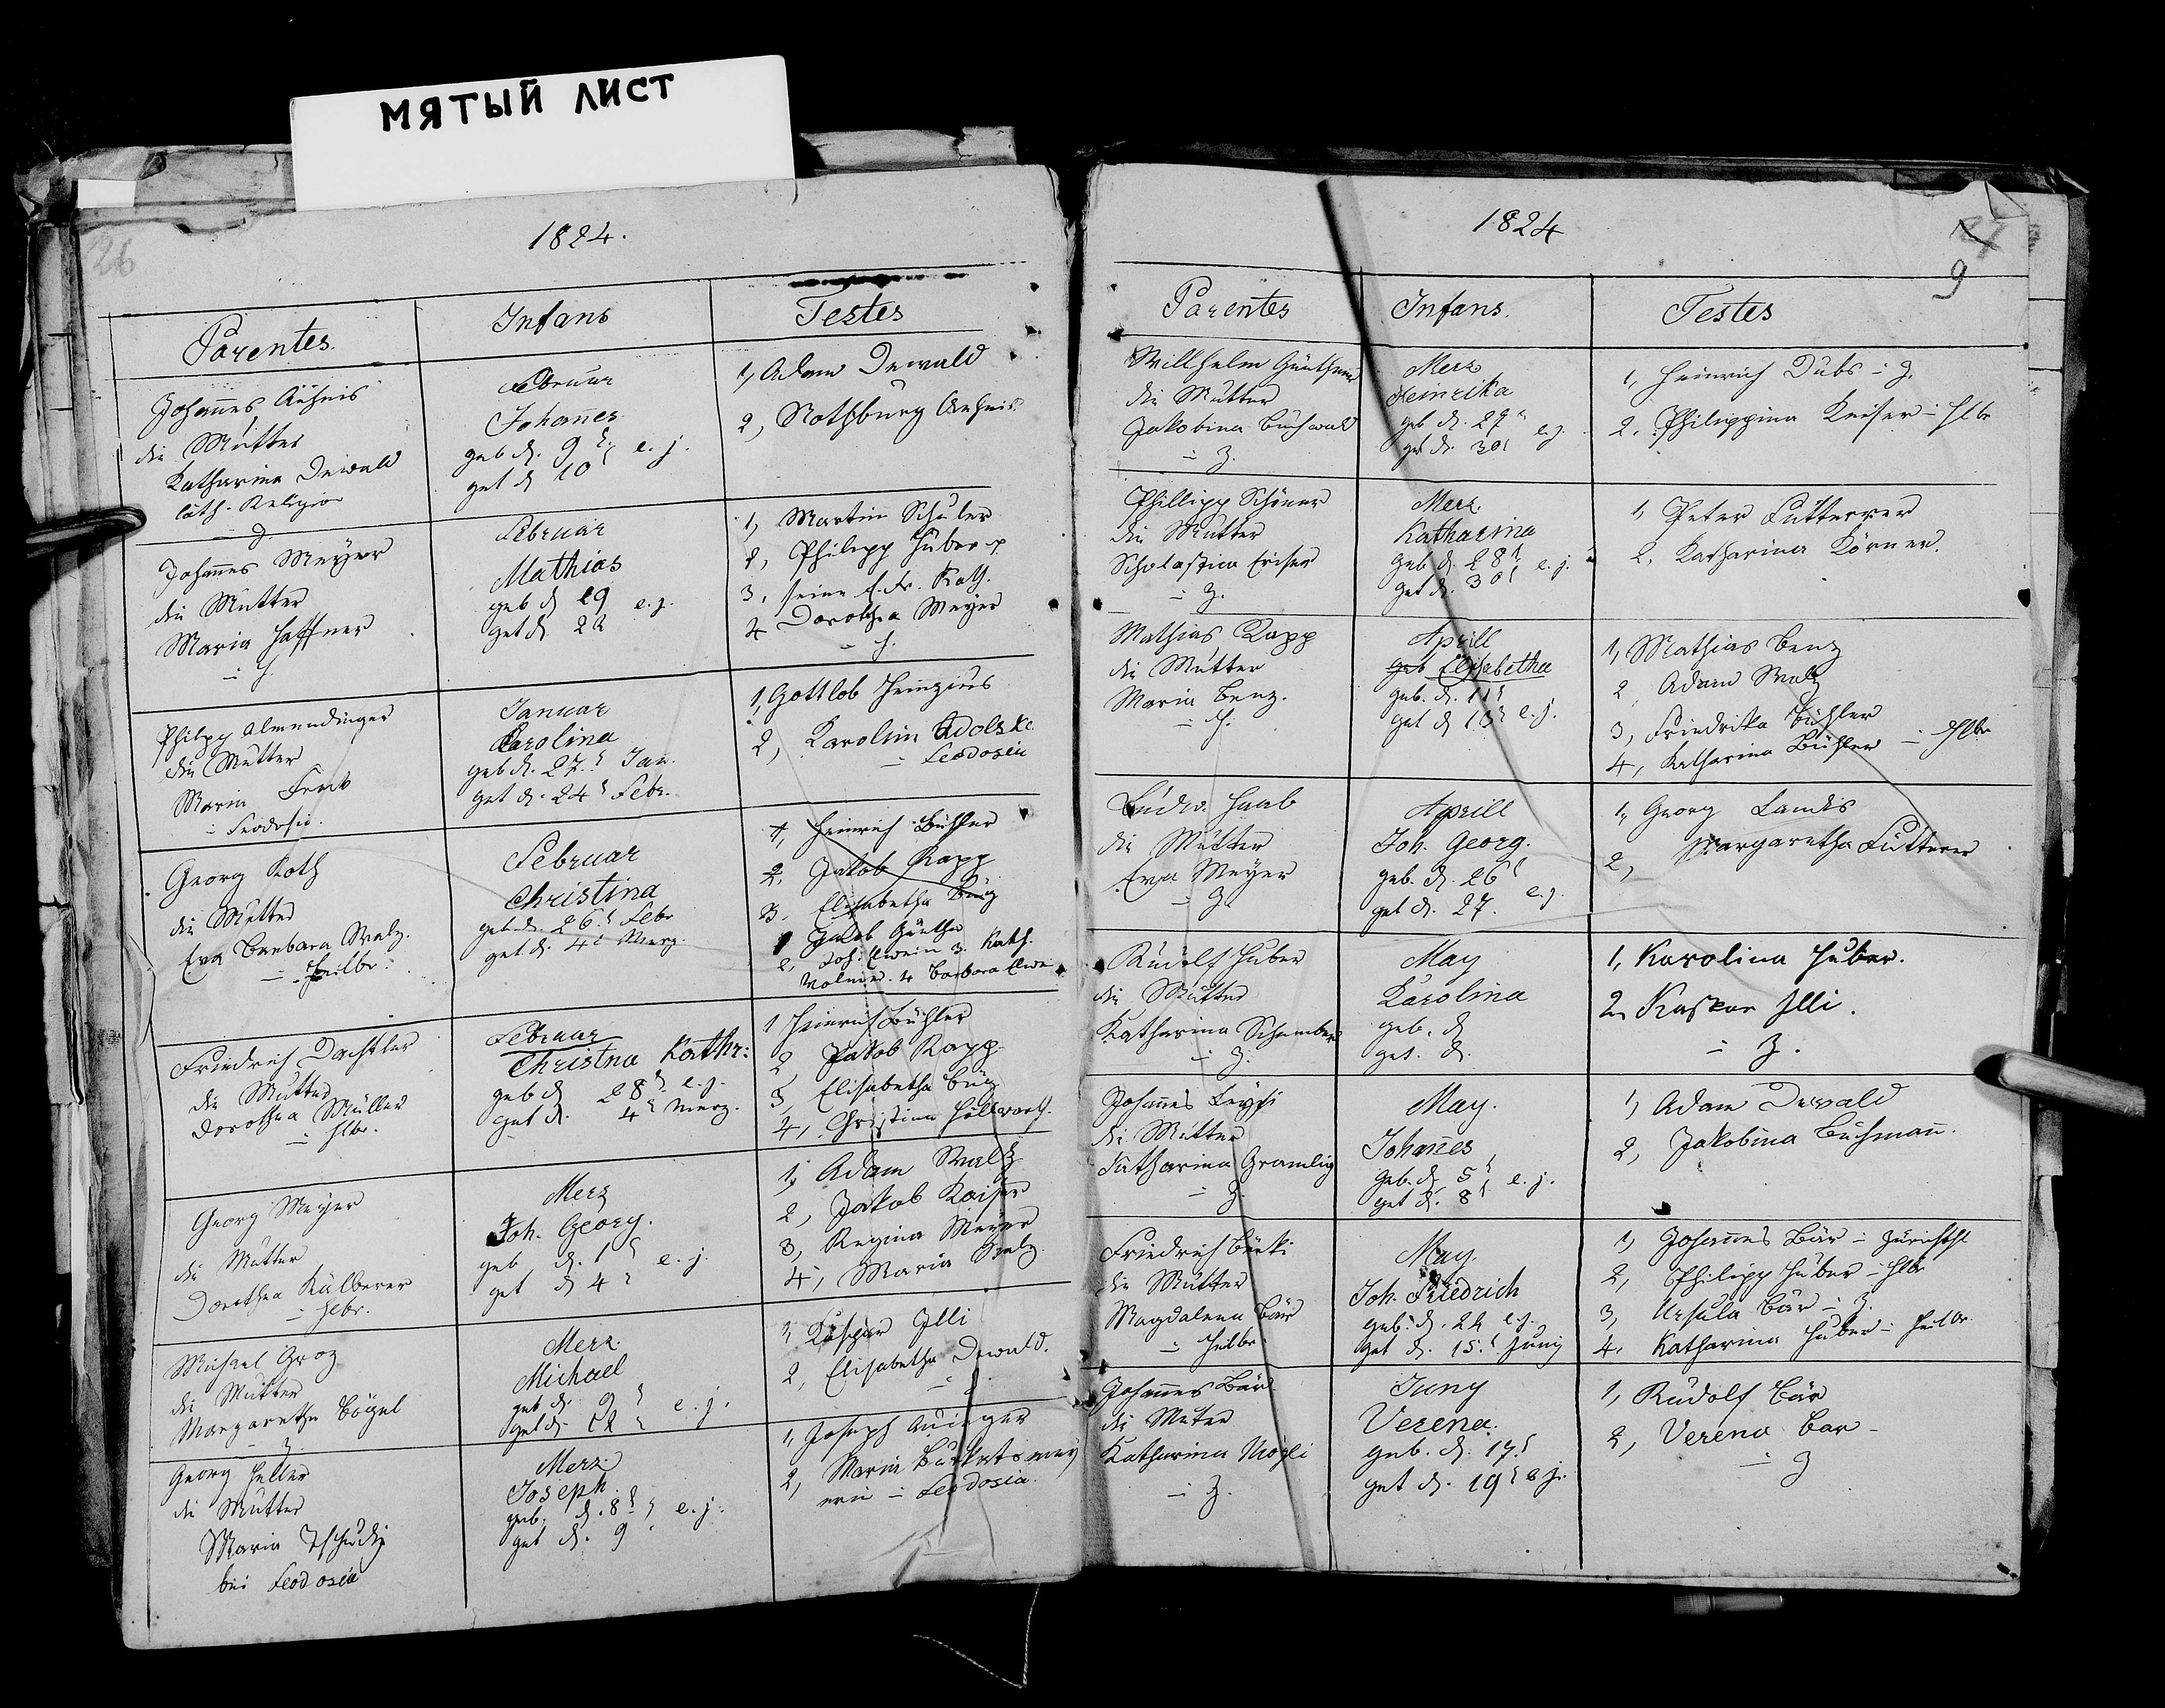 МЯТЫЙ ЛИСТ
26
1824.
Parentes
Infans
Testes
Johannes
die Mutter
Katharina Dewald
luth. Religion
Februar
Johannes
geb d. 9 e. j.
get d 10
1, Adam Dewald
2, Nothburg
Johannes Meyer
die Mutter
Maria Haffner
Februar
Mathias
geb d 19 e. j.
get d. 22
1, Martin Schuler
2, Philipp Huber
3, seine Kath.
4 Dorothea Meyer
Philipp Almendinger
die Mutter
Maria
Feodosia.
Januar
Carolina
geb d. 27 Jan.
get d. 24 Febr.
1, Gottlob
2, Karolin
Feodosia
Georg Roth
die Mutter
Eva Barbara Walz.
Heilbr.
Februar
Christina
geb d. 26 Febr
get d. 4 Merz.
1, Heinrich Bühler
2, Jakob Rapp
3. Elisabetha
1 Jakob Günther
2, Joh: 3. Kath.
4 Barbara
Friedrich Dachtler
die Mutter
Dorothea Müller
Hlbr.
Februar
Christna Kathr:
geb d 28 e. j.
get d. 4 Merz.
1 Heinrich Bühler
2 Jakob Rapp
3 Elisabetha
4, Christina
Georg Meyer
die Mutter
Dorothea Kälberer
Hlbr.
Merz
Joh. Georg.
geb d. 1 e. j.
get d 4
1, Adam Walz
2, Jakob Kaiser
3, Regina Meyer
4, Maria Walz.
Michael Groz
die Mutter
Margaretha Bögel
Z.
Merz.
Michael
geb d. 9 e. j.
get d. 12
1, Kaspar Illi
2, Elisabetha Dewald.
Georg Heller
die Mutter
Maria Tschudy
bei Feodosia
Merz
Joseph.
geb. d. 8 e. j.
get d. 9
1, Joseph Auinger
2, Maria
Feodosia.
1824
9
Parentes
Infans.
Testes
Willhelm Günthner
die Mutter
Jakobina Buchwald
Z.
Merz
Heinrika
geb d. 29 e. j.
get d. 30
1, Heinrich Dubs Z.
2, Philippina Keiser Hlbr
Phillipp Schöner
die Mutter
Scholastica
Z.
Merz
Katharina
geb d. 28 e. j.
get d. 30
1, Peter Futterer
2, Katharina Körner.
Mathias Rapp
die Mutter
Maria Benz.
Aprill
geb Elisabetha
geb. d. 11
get d 13 e. j.
1, Mathias Benz
2 Adam Walz
3, Friedrika Bühler
4, Katharina Bühler Hlbr
Ludw. Haab
die Mutter
Eva Meyer
Z.
Aprill
Joh. Georg.
geb. d. 26
get d. 27. e. j.
1, Georg Landis
2, Margaretha Futterer
Rudolf Huber
die Mutter
Katharina
Z.
May
Karolina
geb. d
get. d.
1, Karolina Huber.
2, Kaspar Illi.
Z.
Johannes
die Mutter
Katharina Gramlig
Z.
May.
Johannes
geb. d. 5 e. j.
get d. 8
1, Adam Dewald
2, Jakobina Buchmann.
Friedrich
die Mutter
Magdalena Bär
Heilbr
May.
Joh. Friedrich
geb. d. 22 e. j.
get d. 15. Juny
1, Johannes Bär Zürichthl
2, Philipp Huber Hlbr
3, Ursula Bär Z.
4, Katharina Huber Heilbr.
Johannes Bär.
die Muter
Katharina Mögli
Z.
Juny
Verena.
geb. d. 17.
get d. 19 e. j.
1, Rudolf Bär
2, Verena Bar
Z